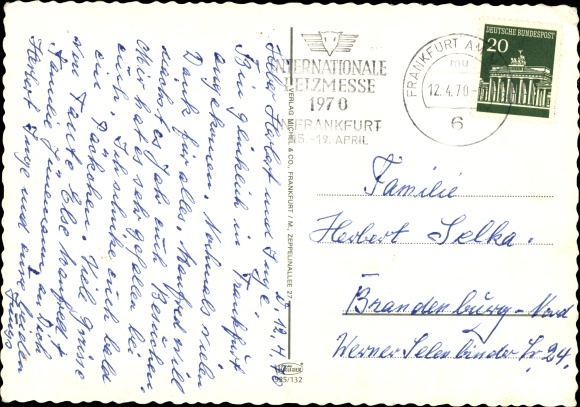 DEUTSCHE BUNDESPOST
20
FRANKFURT AM
12.4.70
6
INTERNATIONALE
PELZMESSE
1970
FRANKFURT
15.-19. APRIL
Familie
Herbert Selka.
Brandenburg-Nord
Werner Seelenbinder Str. 24.
VERLAG MICHEL & CO., FRANKFURT/M., ZEPPELINALLEE 27
985/132
d. 12.4.70
Liebe Herbert und Inge.
Bin glücklich in Frankfurt
angekommen. Nochmals vielen
Dank für alles. Manfred will
nächstes Jahr euch Besuchen
Ihn hat es sehr gefallen bei
euch. Ich schicke euch bald
ein Päckchen. Viele Grüsse
von Tante Else Manfred +
Familie an Dich
Herbert Inge und eure